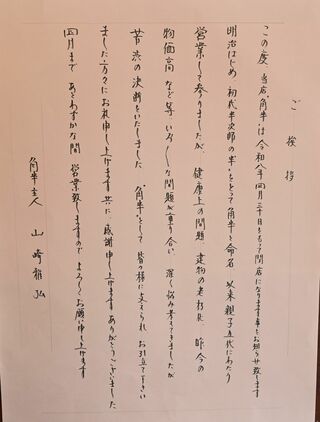 ご挨拶
この度 当店"角半"は 令和八年 四月三十日をもって閉店になります事をお知らせ致します
明治はじめ 初代半次郎の"半"をとって角半と命名 以来親子五代にわたり
営業して参りましたが、健康上の問題、建物の老朽化 昨今の
物価高など等 いろ〱な問題が重り合い 深く悩み考えてきましたが
苦渋の決断をいたしました "角半"として 皆々様に支えられ お引立て下さい
ました方々にお礼申し上げます 共に 感謝申し上げます ありがとうございました
四月まで あとわずかな間 営業致しますので よろしくお願い申し上げます
角半主人 山崎雅弘